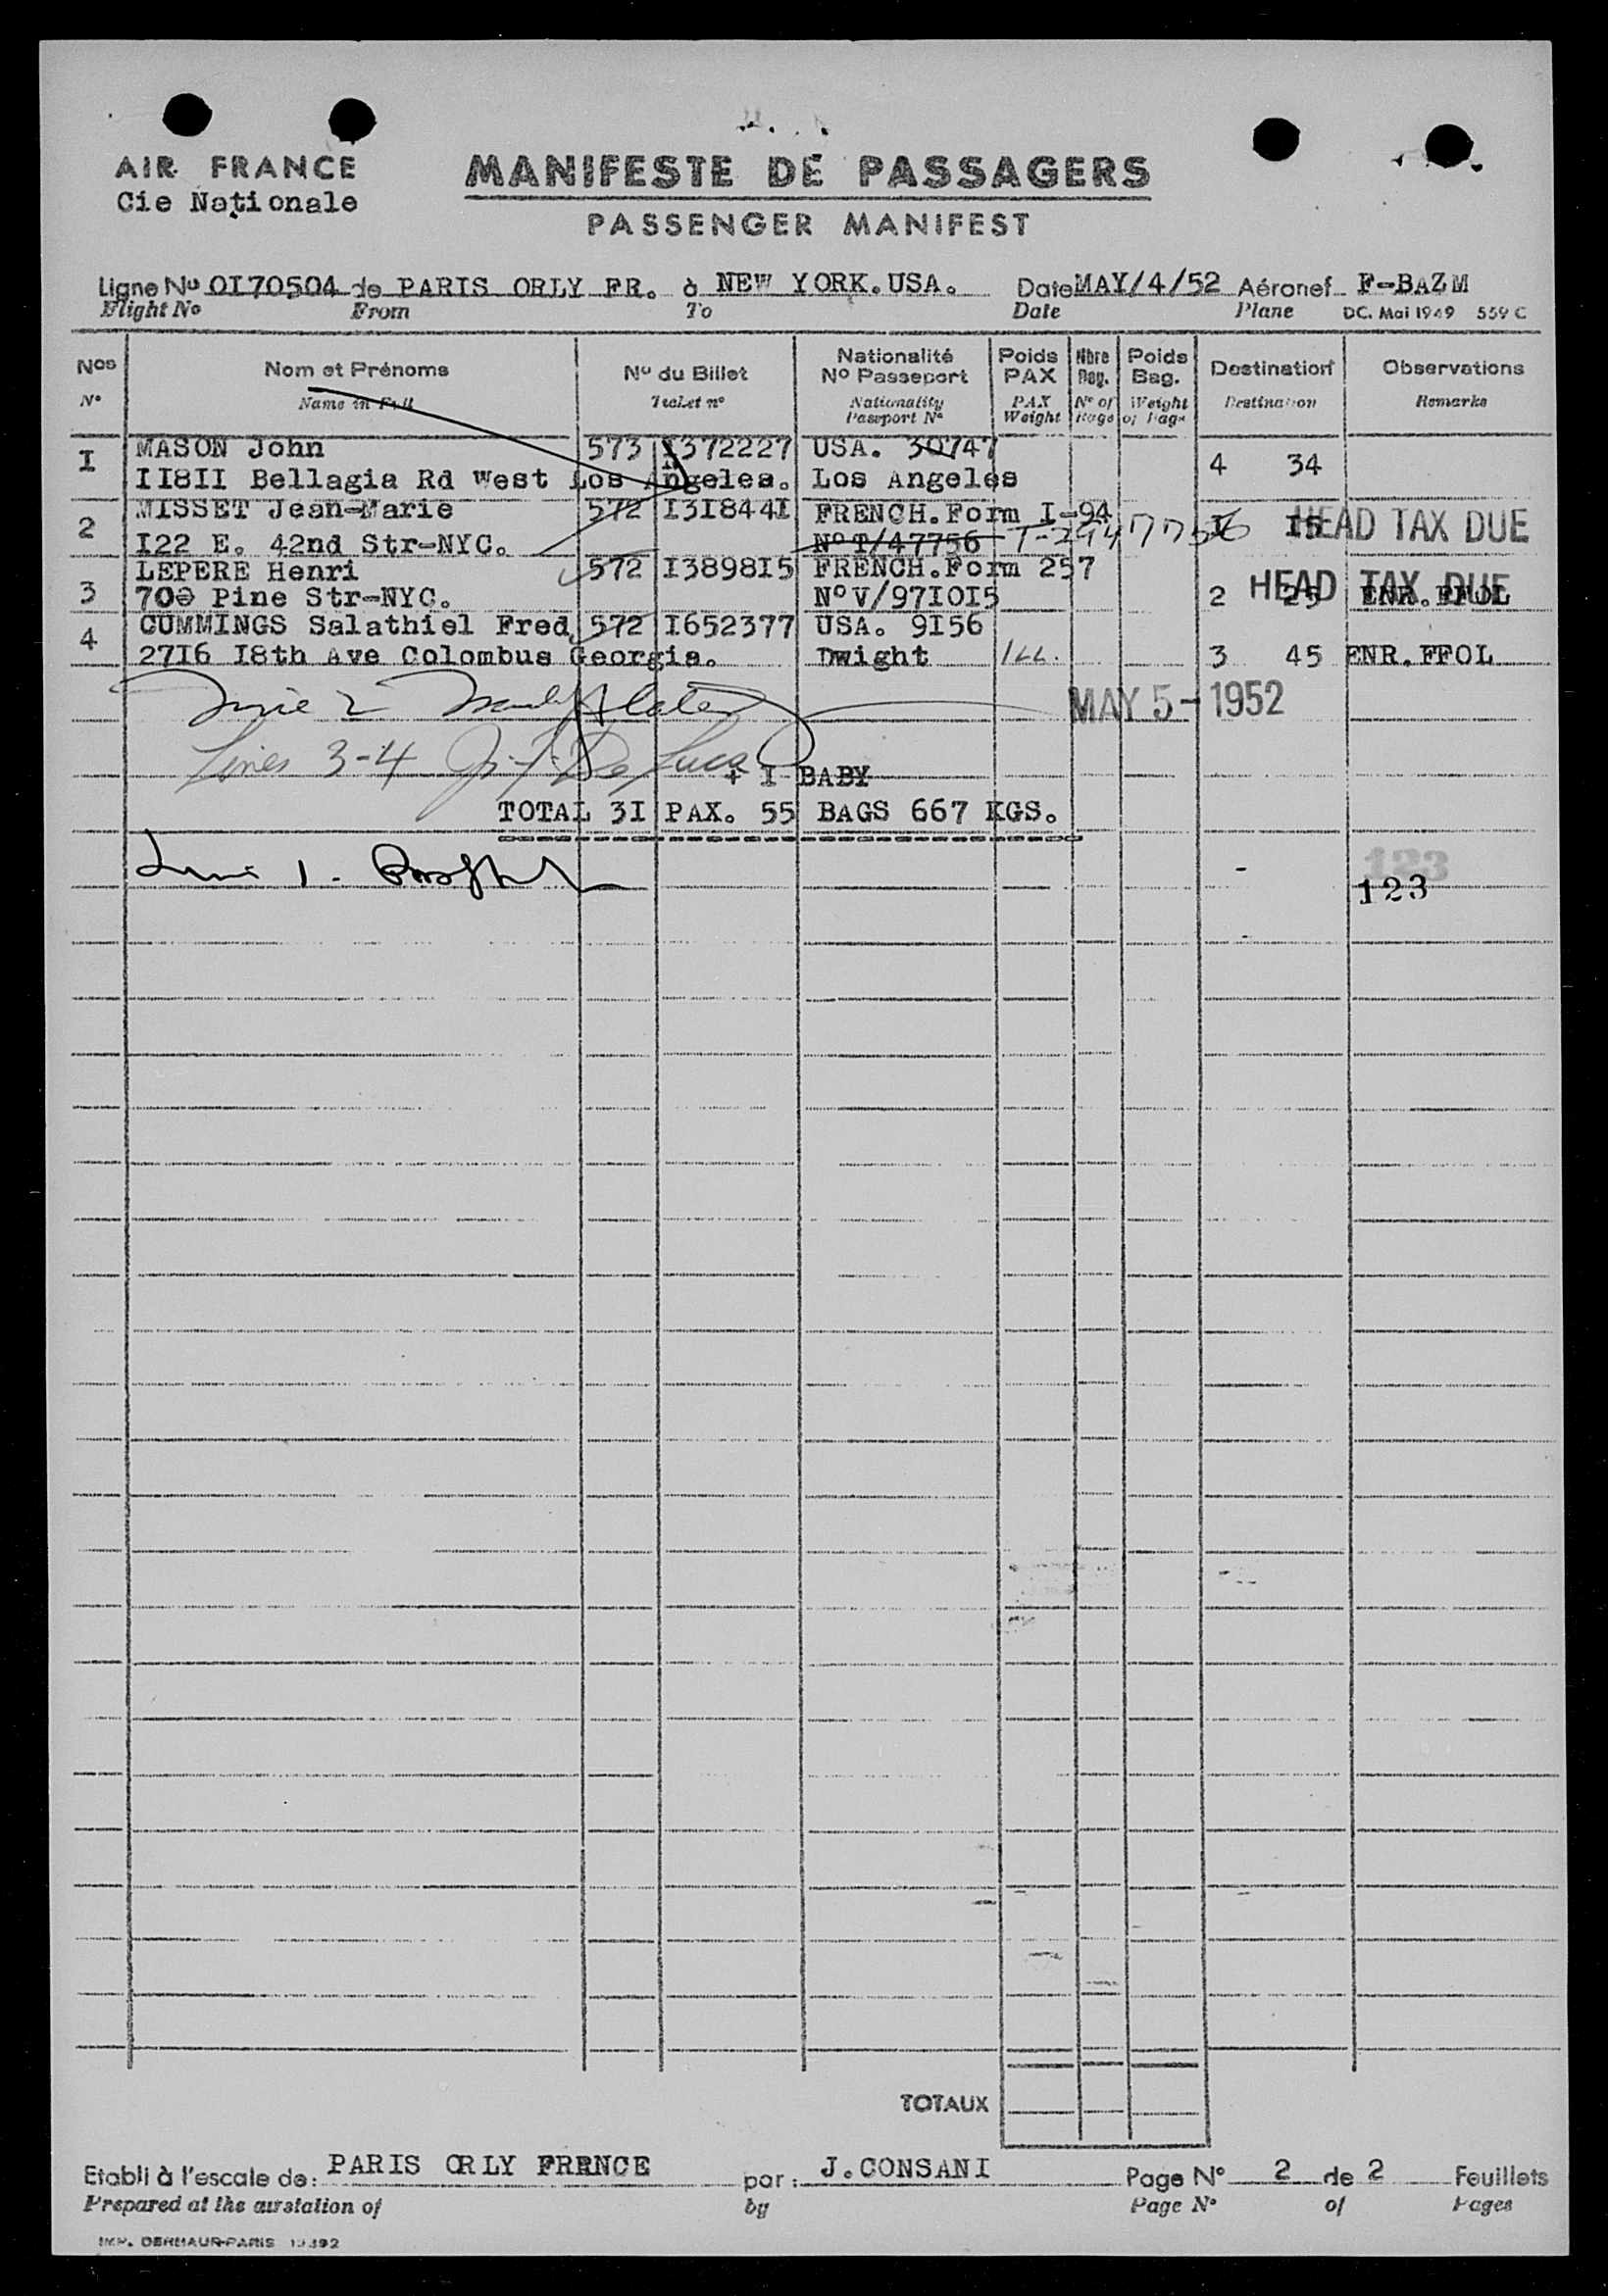 AIR FRANCE
Cie Nationale
MANIFESTE DE PASSAGERS
PASSENGER MANIFEST
Ligne No OI70504 de PARIS ORLY FR. à NEW YORK.USA. Date MAY/4/52 Aéronef F-BAZM
Flight No From To Date Plane DC. Mai 1949 559 C
Nos Nom et Prénoms No du Billet Nationalité No Passeport Poids PAX Nbre Bag. Poids Bag. Destination Observations
No Name in Full Ticket no Nationality Passport No PAX Weight No of Bags Weight of Bags Destination Remarks
I MASON John 573 I372227 USA. 30747 4 34
II8II Bellagia Rd West Los Angeles. Los Angeles
2 MISSET Jean-Marie 572 I3I844I FRENCH.Form I-94 I I5 HEAD TAX DUE
I22 E. 42nd Str-NYC. No T/47756
3 LEPERE Henri 572 I3898I5 FRENCH.Form 257
70 Pine Str-NYC. No V/97I0I5 2 25 HEAD TAX DUE ENR.FFOL
4 CUMMINGS Salathiel Fred 572 I652377 USA. 9I56
27I6 I8th Ave Colombus Georgia. Dwight 3 45 ENR.FFOL
Line 2
MAY 5-1952
Lines 3-4 De Luca
+ I BABY
TOTAL 3I PAX. 55 BAGS 667 KGS.
Line 1.
123
123
TOTAUX
Etabli à l'escale de: PARIS ORLY FRENCE par: J.CONSANI Page No 2 de 2 Feuillets
Prepared at the airstation of by Page No of Pages
IMP. DERMAUR-PARIS